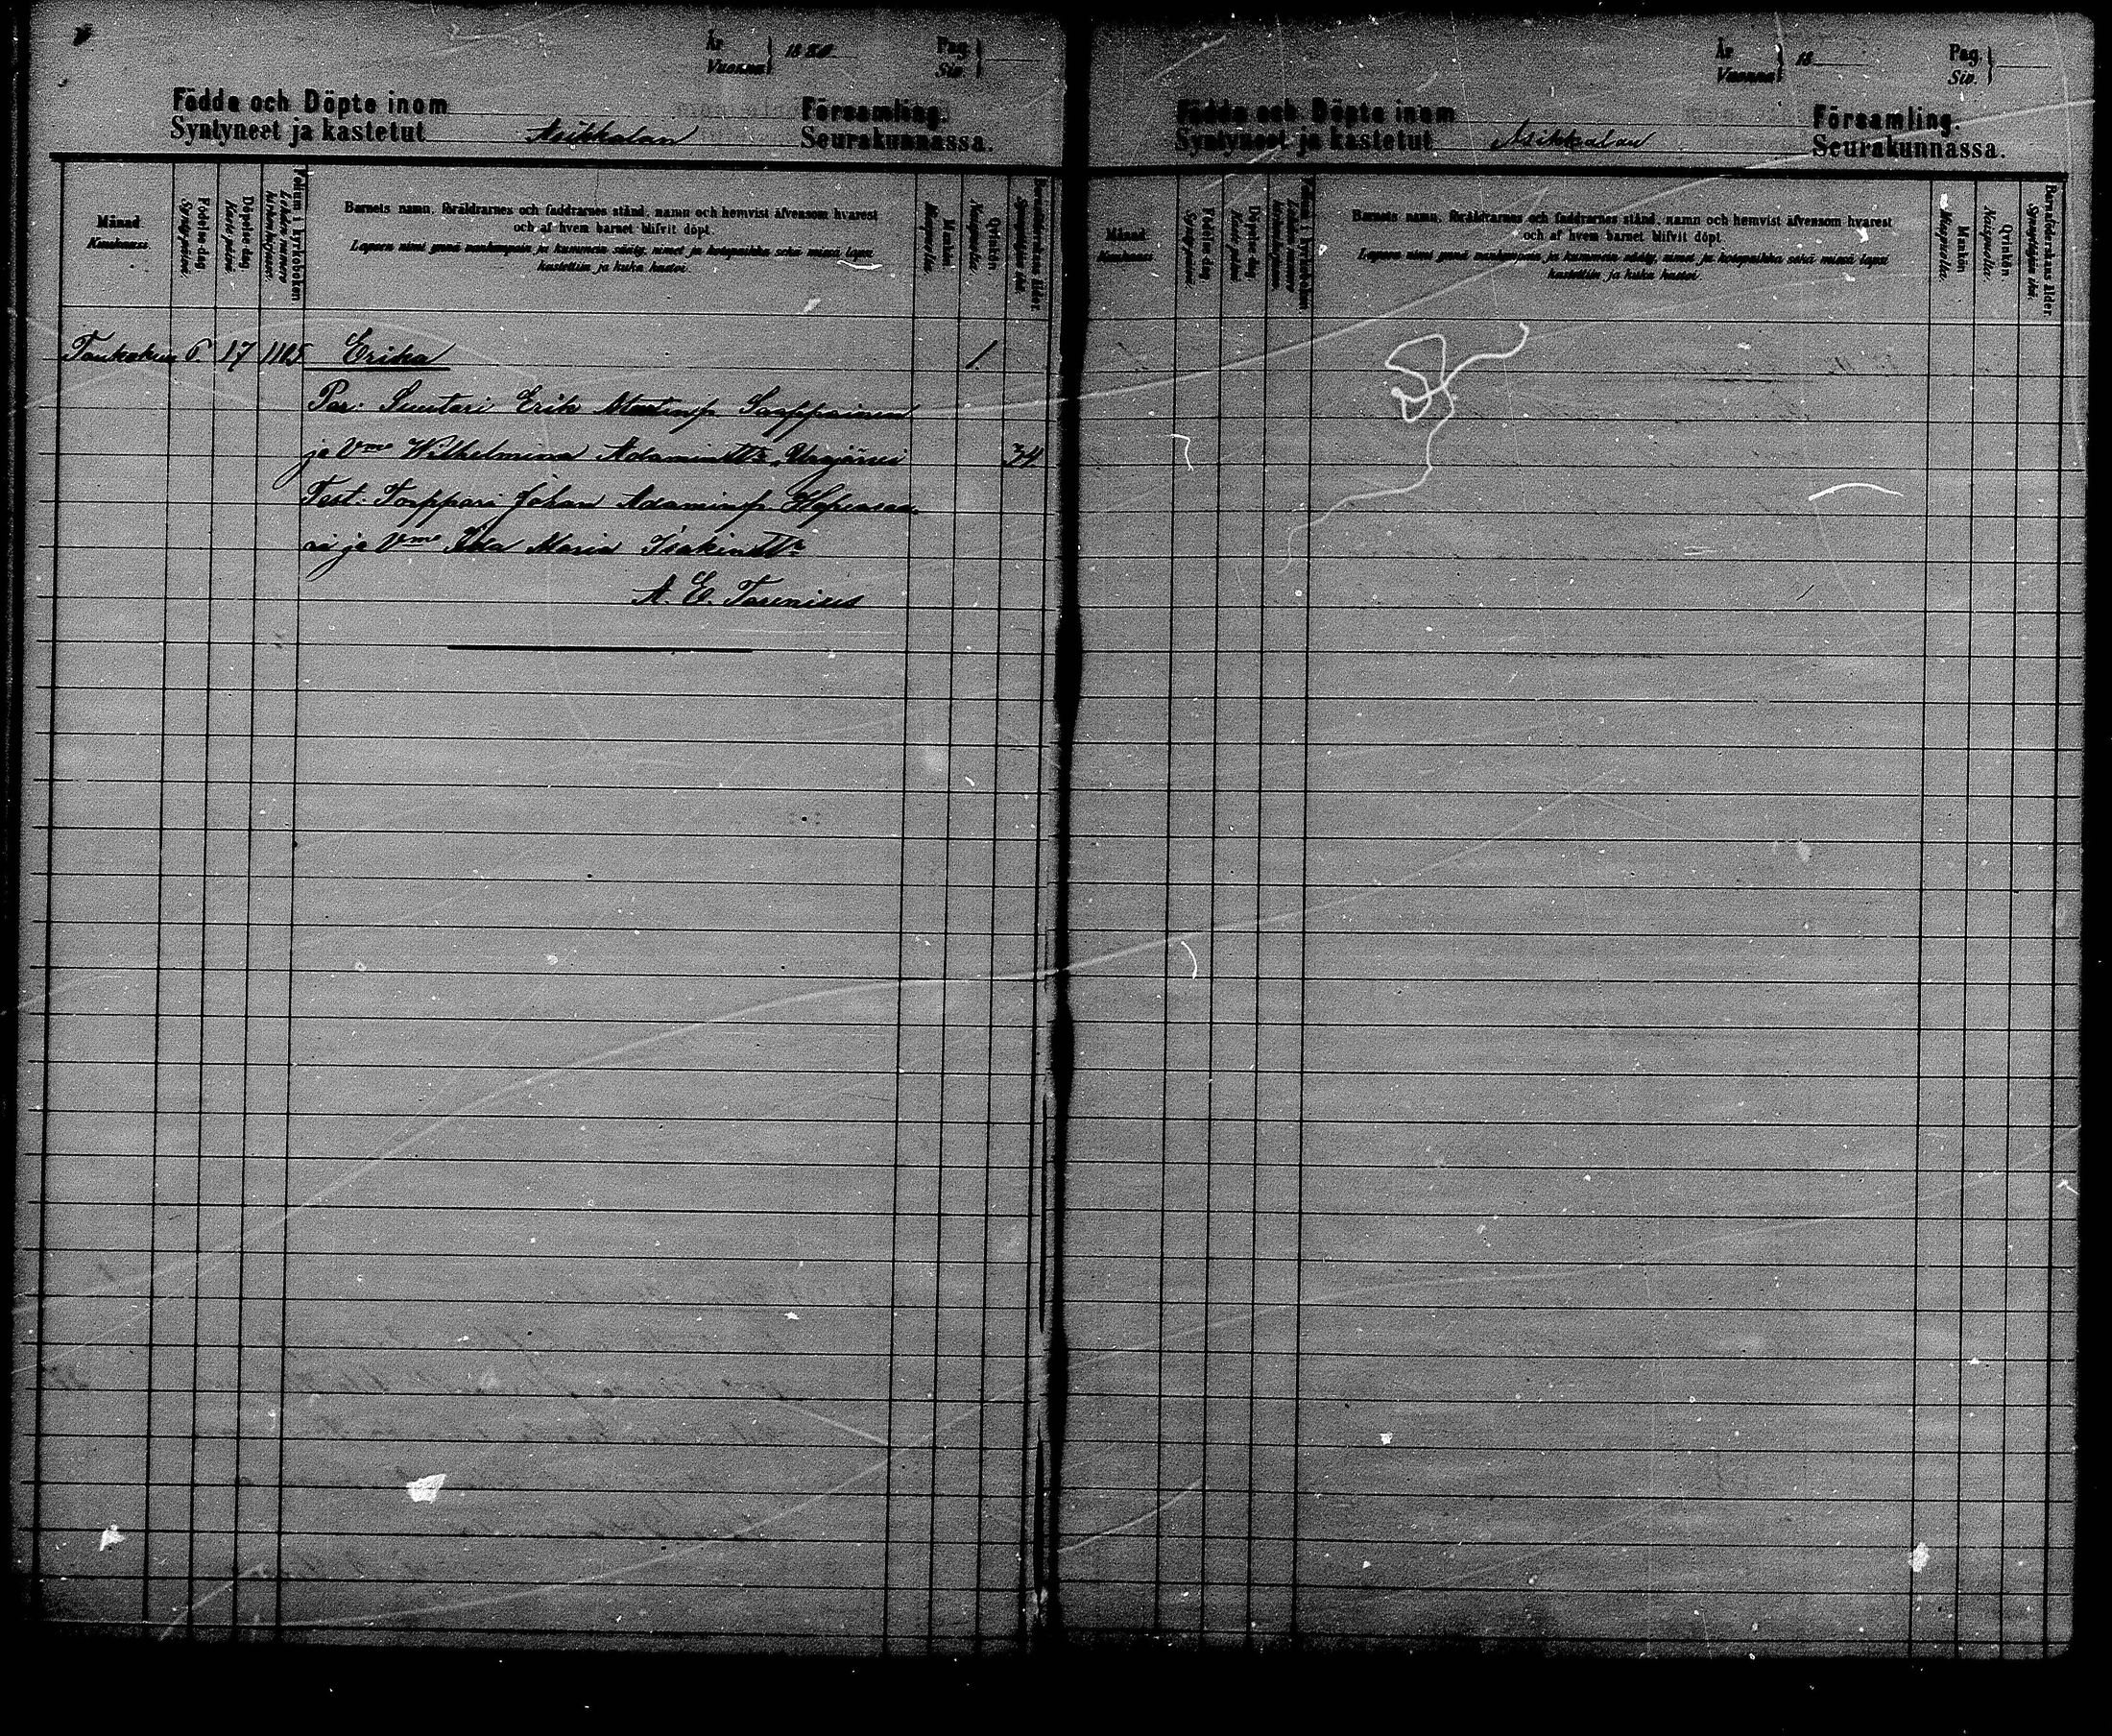 År
Vuonna } 1880.
Pag.
Siv. }
Födde och Döpte inom Församling.
Syntyneet ja kastetut Asikkalan Seurakunnassa.
Månad.
Kuukausi.
Födelse-dag.
Syntymäpäivä.
Döpelse-dag.
Kaste-päivä.
Folium i kyrkoboken
Lehden numero
kirkonkirjassa.
Barnets namn, föräldrarnes och faddrarnes stånd, namn och hemvist äfvensom hvarest
och af hvem barnet blifvit döpt.
Lapsen nimi ynnä vanhempain ja kummein sääty, nimet ja kotopaikka sekä missä lapsi
kastettiin ja kuka kastoi.
Mankön
Miespuolia.
Qvinkön
Naispuolia.
Barnaföderskans ålder.
Synnyttäjän ikä.
Toukokuu 6. 17 1105 Erika 1.
Par: Suutari Erik Matinp.
ja Vmo Wilhelmina Adamintr, Urajärvi 34.
Test: Torppari Johan Adaminp.
ri ja Vmo Ida Maria Isakintr
A. E. Torenius
År
Vuonna } 18
Pag.
Siv. }
Födde och Döpte inom Församling.
Syntyneet ja kastetut Asikkalan Seurakunnassa.
Månad.
Kuukausi.
Födelse-dag.
Syntymäpäivä.
Döpelse-dag.
Kaste-päivä.
Folium i kyrkoboken.
Lehden numero
kirkonkirjassa.
Barnets namn, föräldrarnes och faddrarnes stånd, namn och hemvist äfvensom hvarest
och af hvem barnet blifvit döpt.
Lapsen nimi ynnä vanhempain ja kummein sääty, nimet ja kotopaikka sekä missä lapsi
kastettiin ja kuka kastoi.
Mankön
Miespuolia.
Qvinkön.
Naispuolia.
Barnaföderskans ålder.
Synnyttäjän ikä.